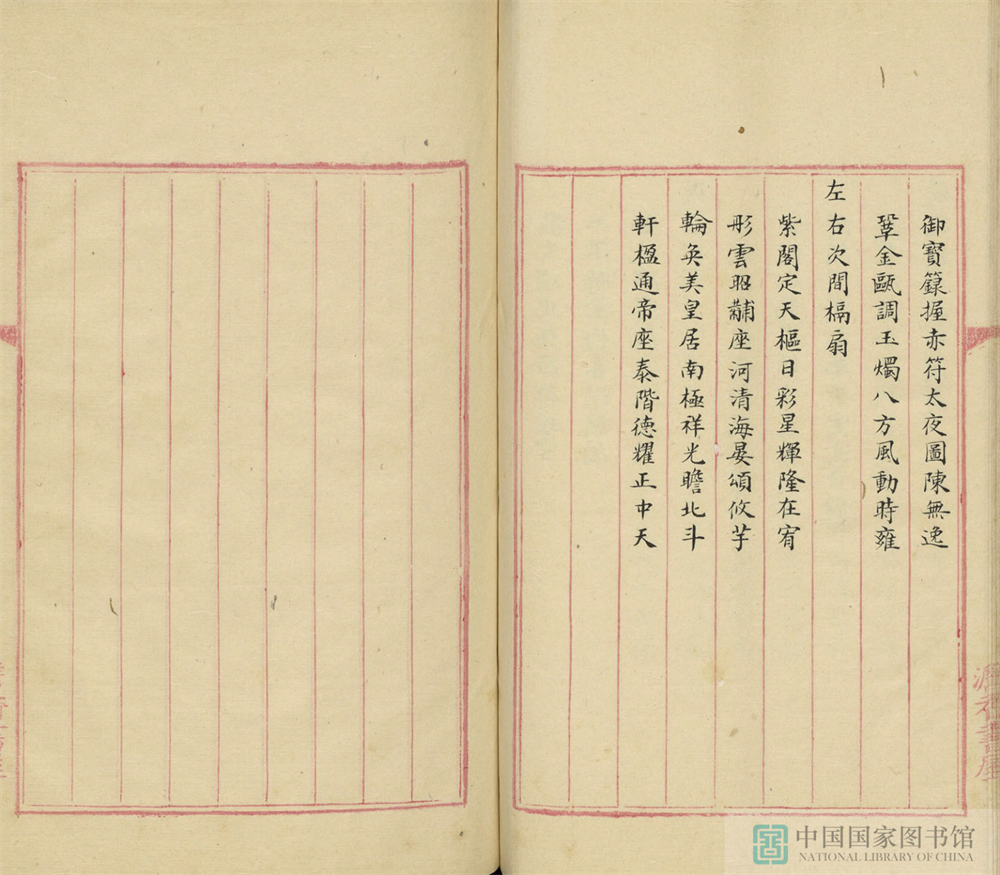 御寳籙握赤符太夜圖陳無逸
鞏金甌調玉燭八方風動時雍
左右次間槅扇
紫閣定天樞日彩星輝隆在宥
彤雲昭黼座河清海晏頌攸芋
輪奐美皇居南極祥光瞻北斗
軒楹通帝座泰階德耀正中天
中国国家图书馆
NATIONAL LIBRARY OF CHINA